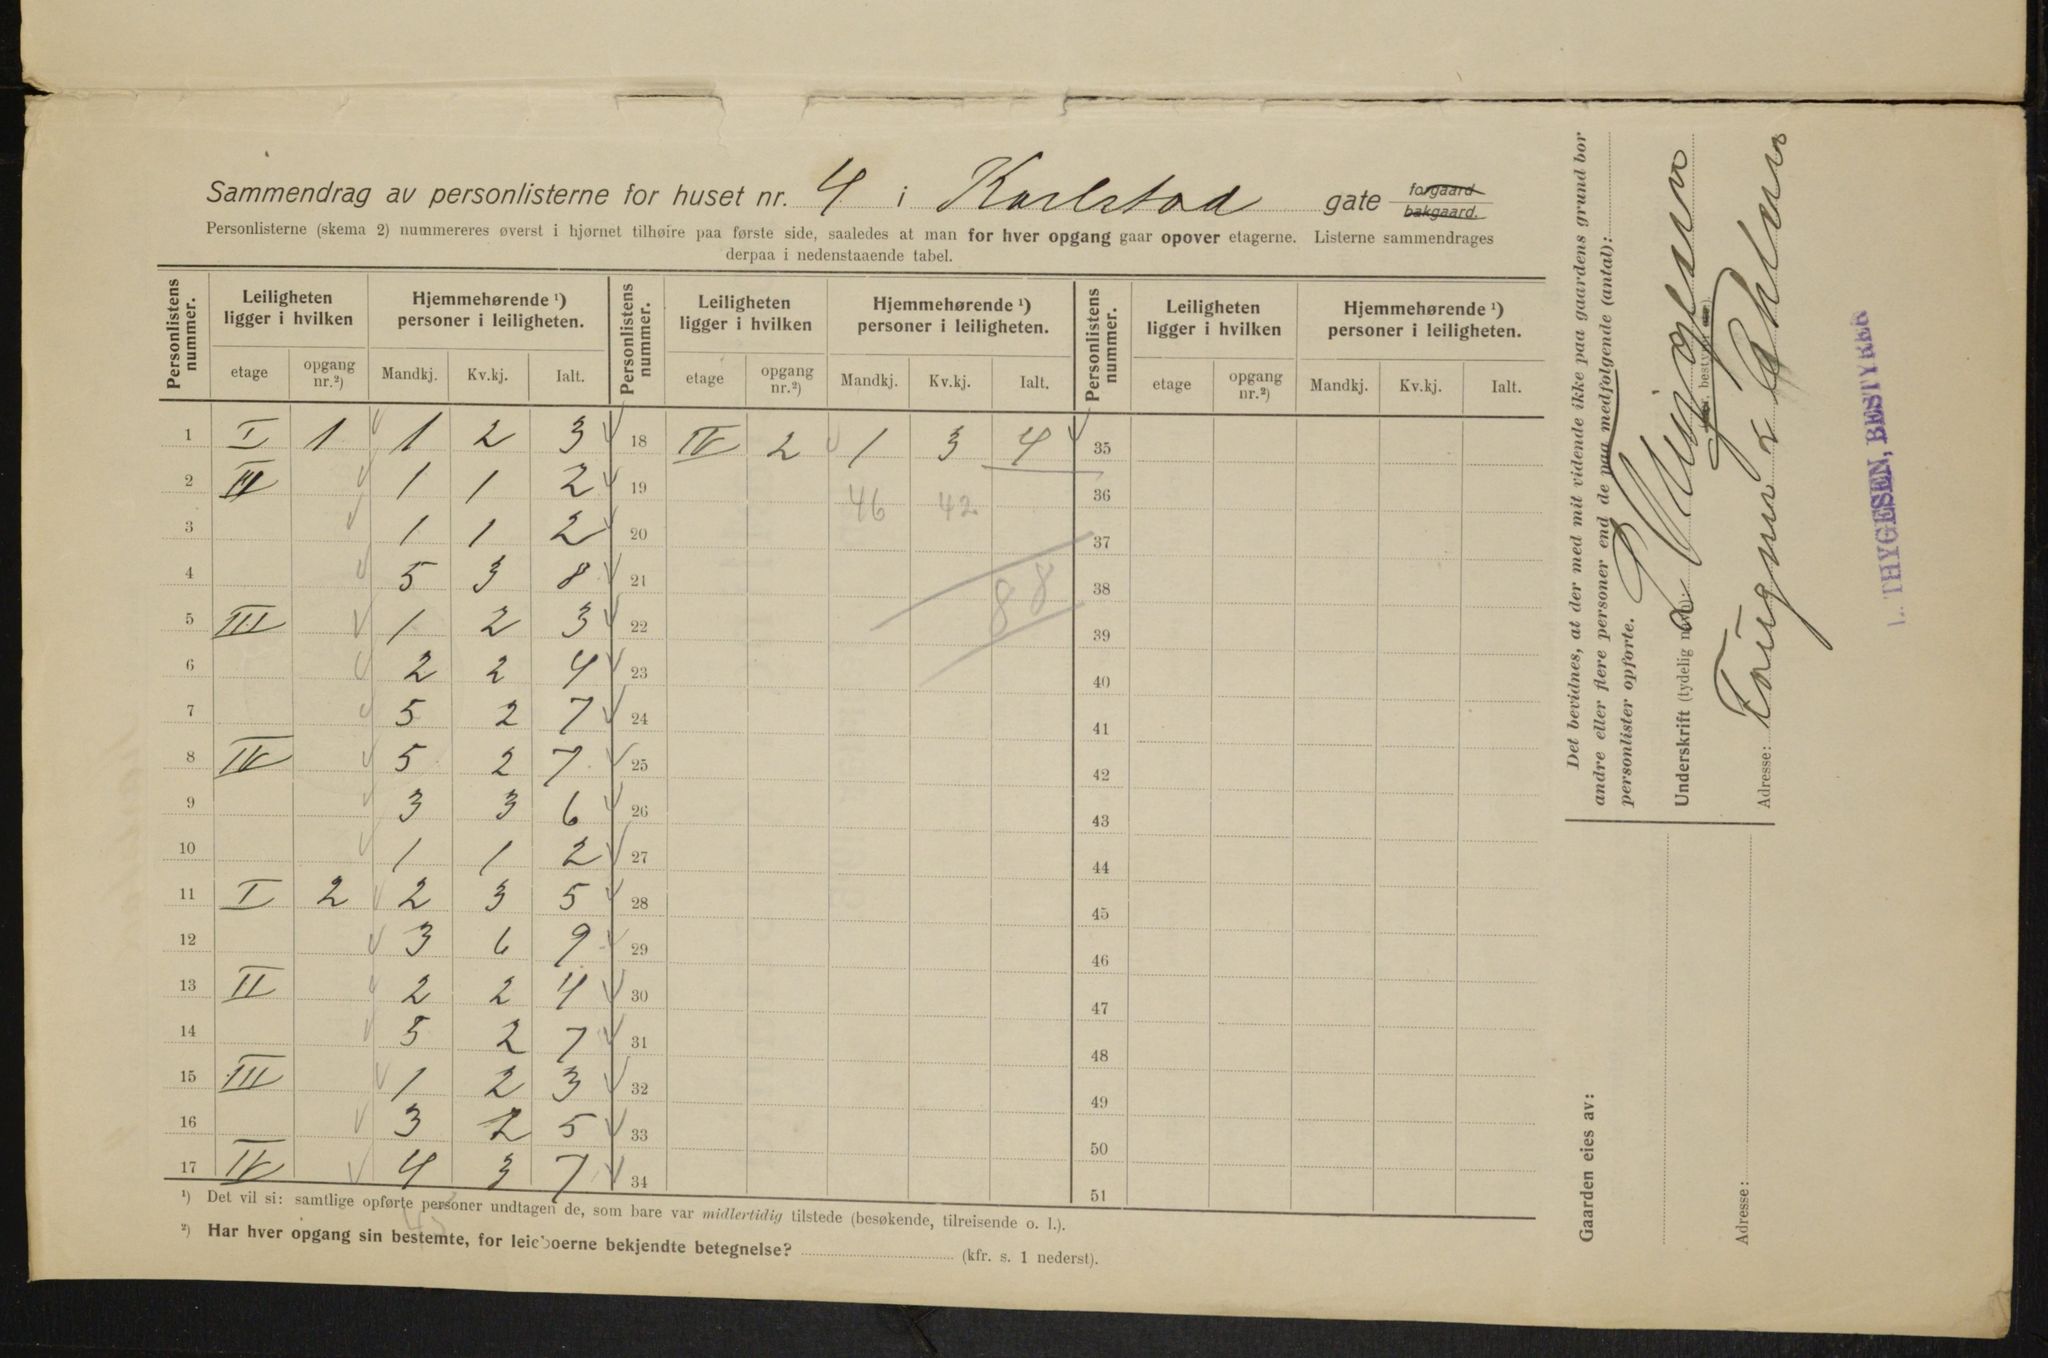 Sammendrag av personlisterne for huset nr. 4 i Karlstad gate forgaard bakgaard.
Personlisterne (skema 2) nummereres øverst i hjørnet tilhøire paa første side, saaledes at man for hver opgang gaar opover etagerne. Listerne sammendrages
derpaa i nedenstaaende tabel.
Personlistens nummer. Leiligheten ligger i hvilken Hjemmehørende ¹) personer i leiligheten. Personlistens nummer. Leiligheten ligger i hvilken Hjemmehørende ¹) personer i leiligheten. Personlistens nummer. Leiligheten ligger i hvilken Hjemmehørende ¹) personer i leiligheten.
etage opgang nr.²) Mandkj. Kv.kj. Ialt. etage opgang nr.²) Mandkj. Kv.kj. Ialt. etage opgang nr.²) Mandkj. Kv.kj. Ialt.
1 I 1 1 2 3 18 IV 2 1 3 4 35
2 II 1 1 2 19 46 42 36
3 1 1 2 20 37
4 5 3 8 21 88 38
5 III 1 2 3 22 39
6 2 2 4 23 40
7 5 2 7 24 41
8 IV 5 2 7 25 42
9 3 3 6 26 43
10 1 1 2 27 44
11 I 2 2 3 5 28 45
12 3 6 9 29 46
13 II 2 2 4 30 47
14 5 2 7 31 48
15 III 1 2 3 32 49
16 3 2 5 33 50
17 IV 4 3 7 34 51
¹) Det vil si: samtlige opførte personer undtagen de, som bare var midlertidig tilstede (besøkende, tilreisende o. l.).
²) Har hver opgang sin bestemte, for leieboerne bekjendte betegnelse? (kfr. s. 1 nederst).
Det bevidnes, at der med mit vidende ikke paa gaardens grund bor
andre eller flere personer end de paa medfølgende (antal):
personlister opførte.
Underskrift (tydelig navn):
Adresse:
Gaarden eies av:
Adresse:
L. THYGESEN, BESTYRER